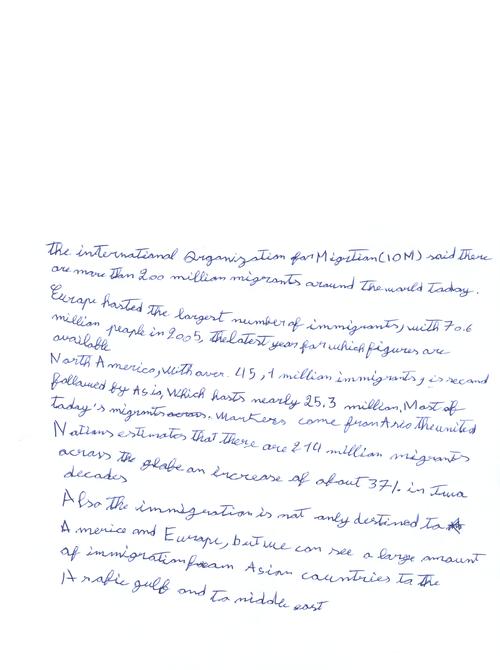 The international Organization for Migration (IOM) said there
are more than 200 million migrants around the world today.
Europe hosted the largest number of immigrants, with 70.6
million people in 2005, the latest year for which figures are
available
North America, with over 45,1 million immigrants, is second
followed by Asia, Which hosts nearly 25.3 million, Most of
today's migrants across. Workers come from Asia the united
Nations estimates that there are 214 million migrants
across the globe an increase of about 37% in Two
decades
Also the immigration is not only destined to
America and Europe, but we can see a large amount
of immigration from Asian countries to the
Arabic gulf and to middle east